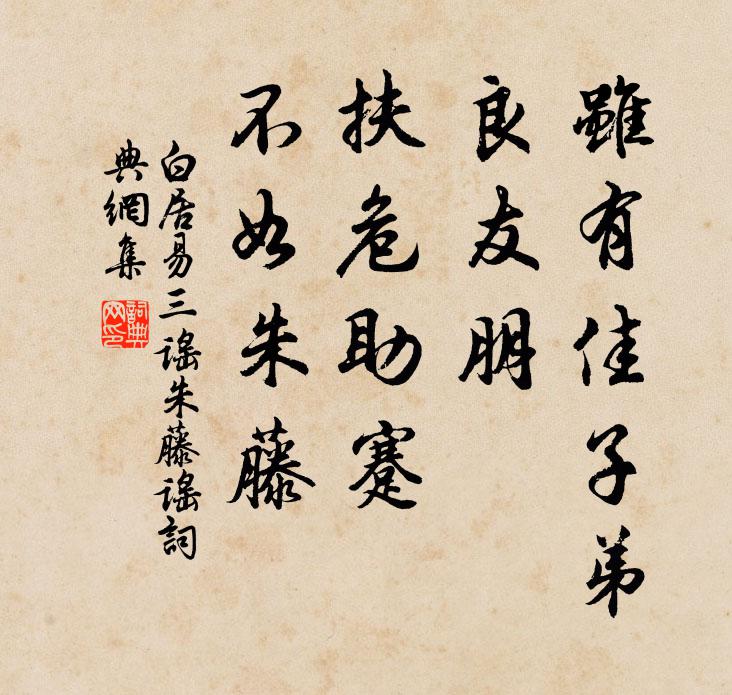 雖有佳子弟
良友朋
扶危助蹇
不如朱藤
白居易三谣朱藤谣詞
典網集
詞典
网印